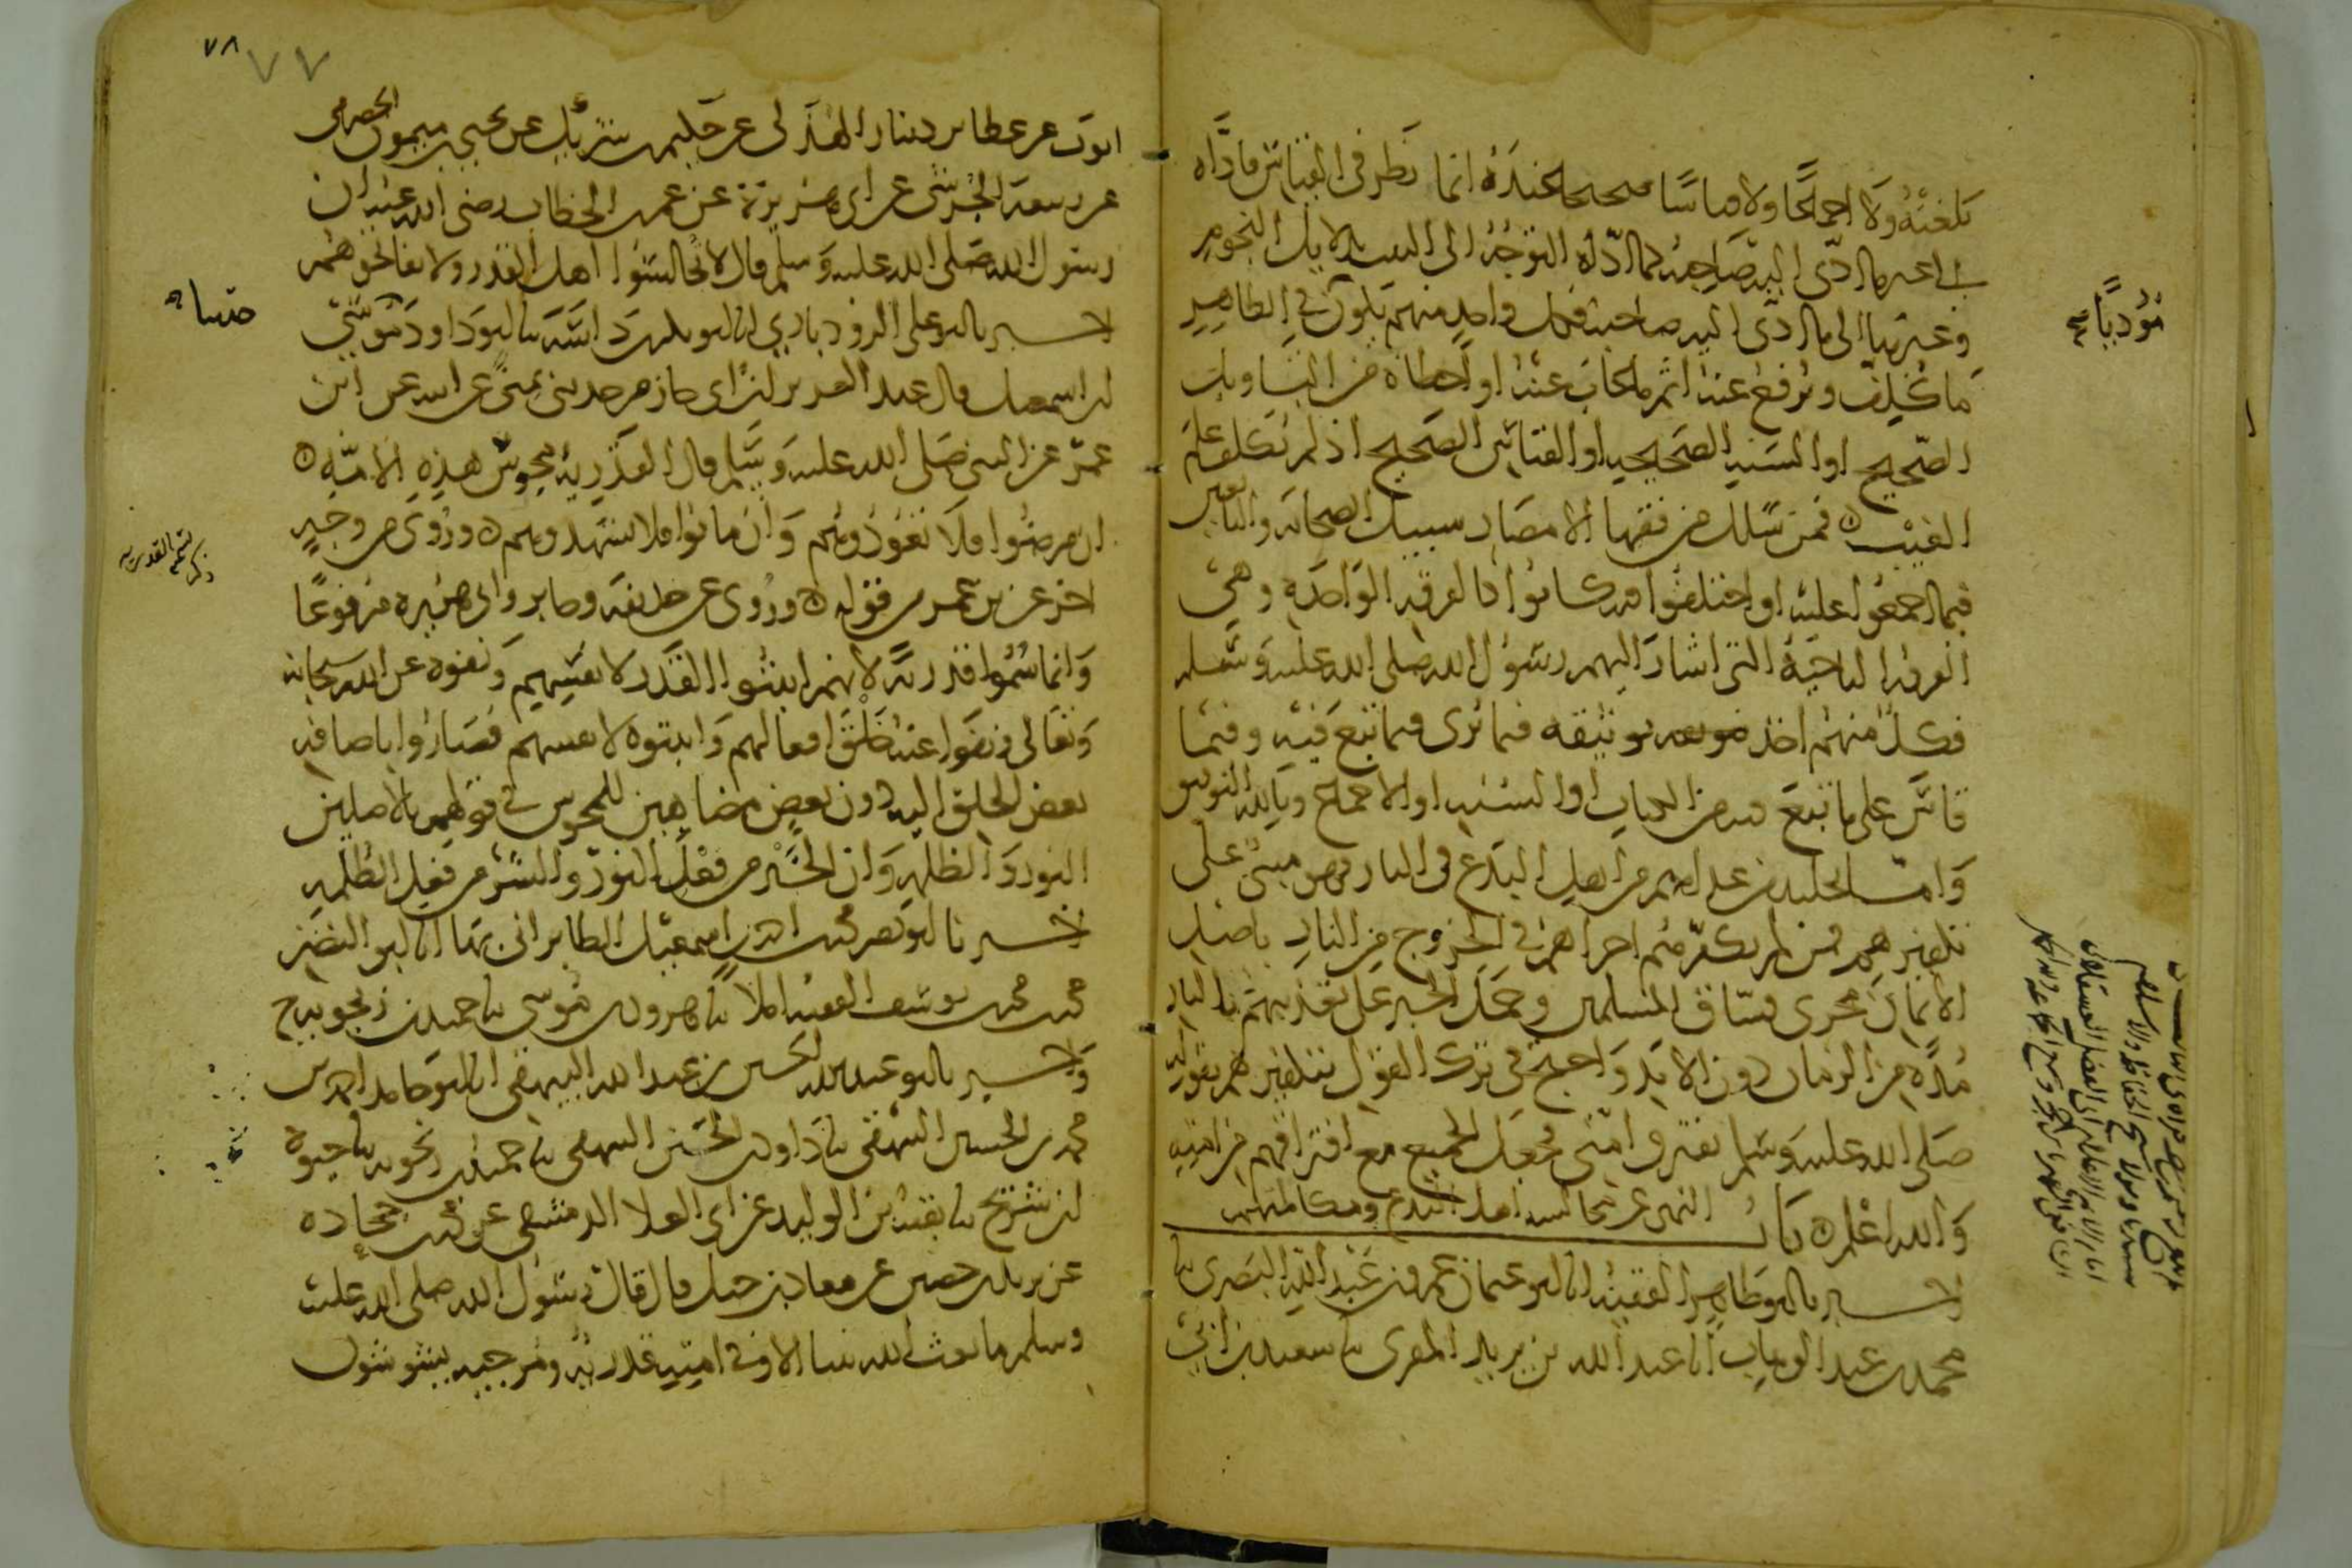 بلغته ولا اجماعا ولا قياسا صحيحا عنده انما نظر فى القياس فاداه
الى غير ما ادى اليه صاحبه كما اداه التوجه الى البيت بدلايل النجوم
وغيرها الى ما ادى اليه صاحبه فكل واحد منهم يكون فى الظاهر
ما كلف ويرفع عنه اثم ما غاب عنه او اخطاه من التاويل
الصحيح او السنة الصحيحة او القياس الصحيح اذ لم يكلف علم
الغيب فمن سلك من فقها الامصار سبيل الصحابة والتابعين
فيما اجمعوا عليه او اختلفوا فيه كانوا كالفرقة الواحدة وهى
الفرقة الناجية التى اشار اليهم رسول الله صلى الله عليه وسلم
فكل منهم اخذ بوثيقة فيما يرى فيما تبع فيه وفيما
قاس على ما تبع فيه من الكتاب او السنة او الاجماع وبالله التوفيق
واما تخليد من عداهم من اهل البدع فى النار فهو مبنى على
تكفيرهم فمن لم يكفرهم اجراهم فى الخروج من النار باصل
الايمان مجرى فساق المسلمين وحمل الخبر على تعذيبهم بالنار
مدة من الزمان دون الابد واحتج فى ترك القول بتكفيرهم بقوله
صلى الله عليه وسلم تفترق امتى فجعل الجميع مع افتراقهم من امته
والله اعلم باب النهى عن مجالسة اهل البدع ومكالمتهم
اخبرنا ابو طاهر الفقيه انا ابو عثمان عمرو بن عبد الله البصرى نا
محمد بن عبد الوهاب انا عبد الله بن يزيد المقرى نا سعيد بن ابى
مؤديا
٧٨
٧٧
ايوب عن عطا بن دينار الهذلى عن حكيم بن شريك عن يحيى بن ميمون الحضرمى
عن ربيعة الجرشى عن ابى هريرة عن عمر بن الخطاب رضى الله عنه ان
رسول الله صلى الله عليه وسلم قال لا تجالسوا اهل القدر ولا تفاتحوهم
اخبرنا ابو على الروذبارى انا ابو بكر بن داسة نا ابو داود نا موسى
بن اسمعيل قال عبد العزيز بن ابى حازم حدثنى بمنى عن ابيه عن ابن
عمر عن النبى صلى الله عليه وسلم قال القدرية مجوس هذه الامة
ان مرضوا فلا تعودوهم وان ماتوا فلا تشهدوهم وروى من وجه
اخر عن بن عمر من قوله وروى عن حذيفة وجابر وابى هريرة مرفوعا
وانما سموا قدرية لانهم اثبتوا القدر لانفسهم ونفوه عن الله سبحانه
وتعالى ونفوا عنه خلق افعالهم واثبتوه لانفسهم فصاروا باضافة
بعض الخلق اليه دون بعض مضاهين للمجوس فى قولهم بالاصلين
النور والظلمة وان الخير من فعل النور والشر من فعل الظلمة
اخبرنا ابو نصر محمد بن احمد بن اسمعيل الطابرانى بها انا ابو النضر
محمد بن محمد بن يوسف الفقيه املا نا هرون بن موسى نا حميد بن زنجويه ح
واخبرنا ابو عبد الله الحسين بن عبد الله البيهقى انا ابو حامد احمد بن
محمد بن الحسين البيهقى نا داود بن الحسين البيهقى نا حميد بن زنجويه نا حيوة
بن شريح نا بقية بن الوليد عن ابى العلا الدمشقى عن محمد بن جحادة
عن يزيد بن حصين عن معاذ بن جبل قال قال رسول الله صلى الله عليه
وسلم ما بعث الله نبيا الا وفى امته قدرية ومرجية يشوشون
حدثنا
ذكر تسمية القدرية